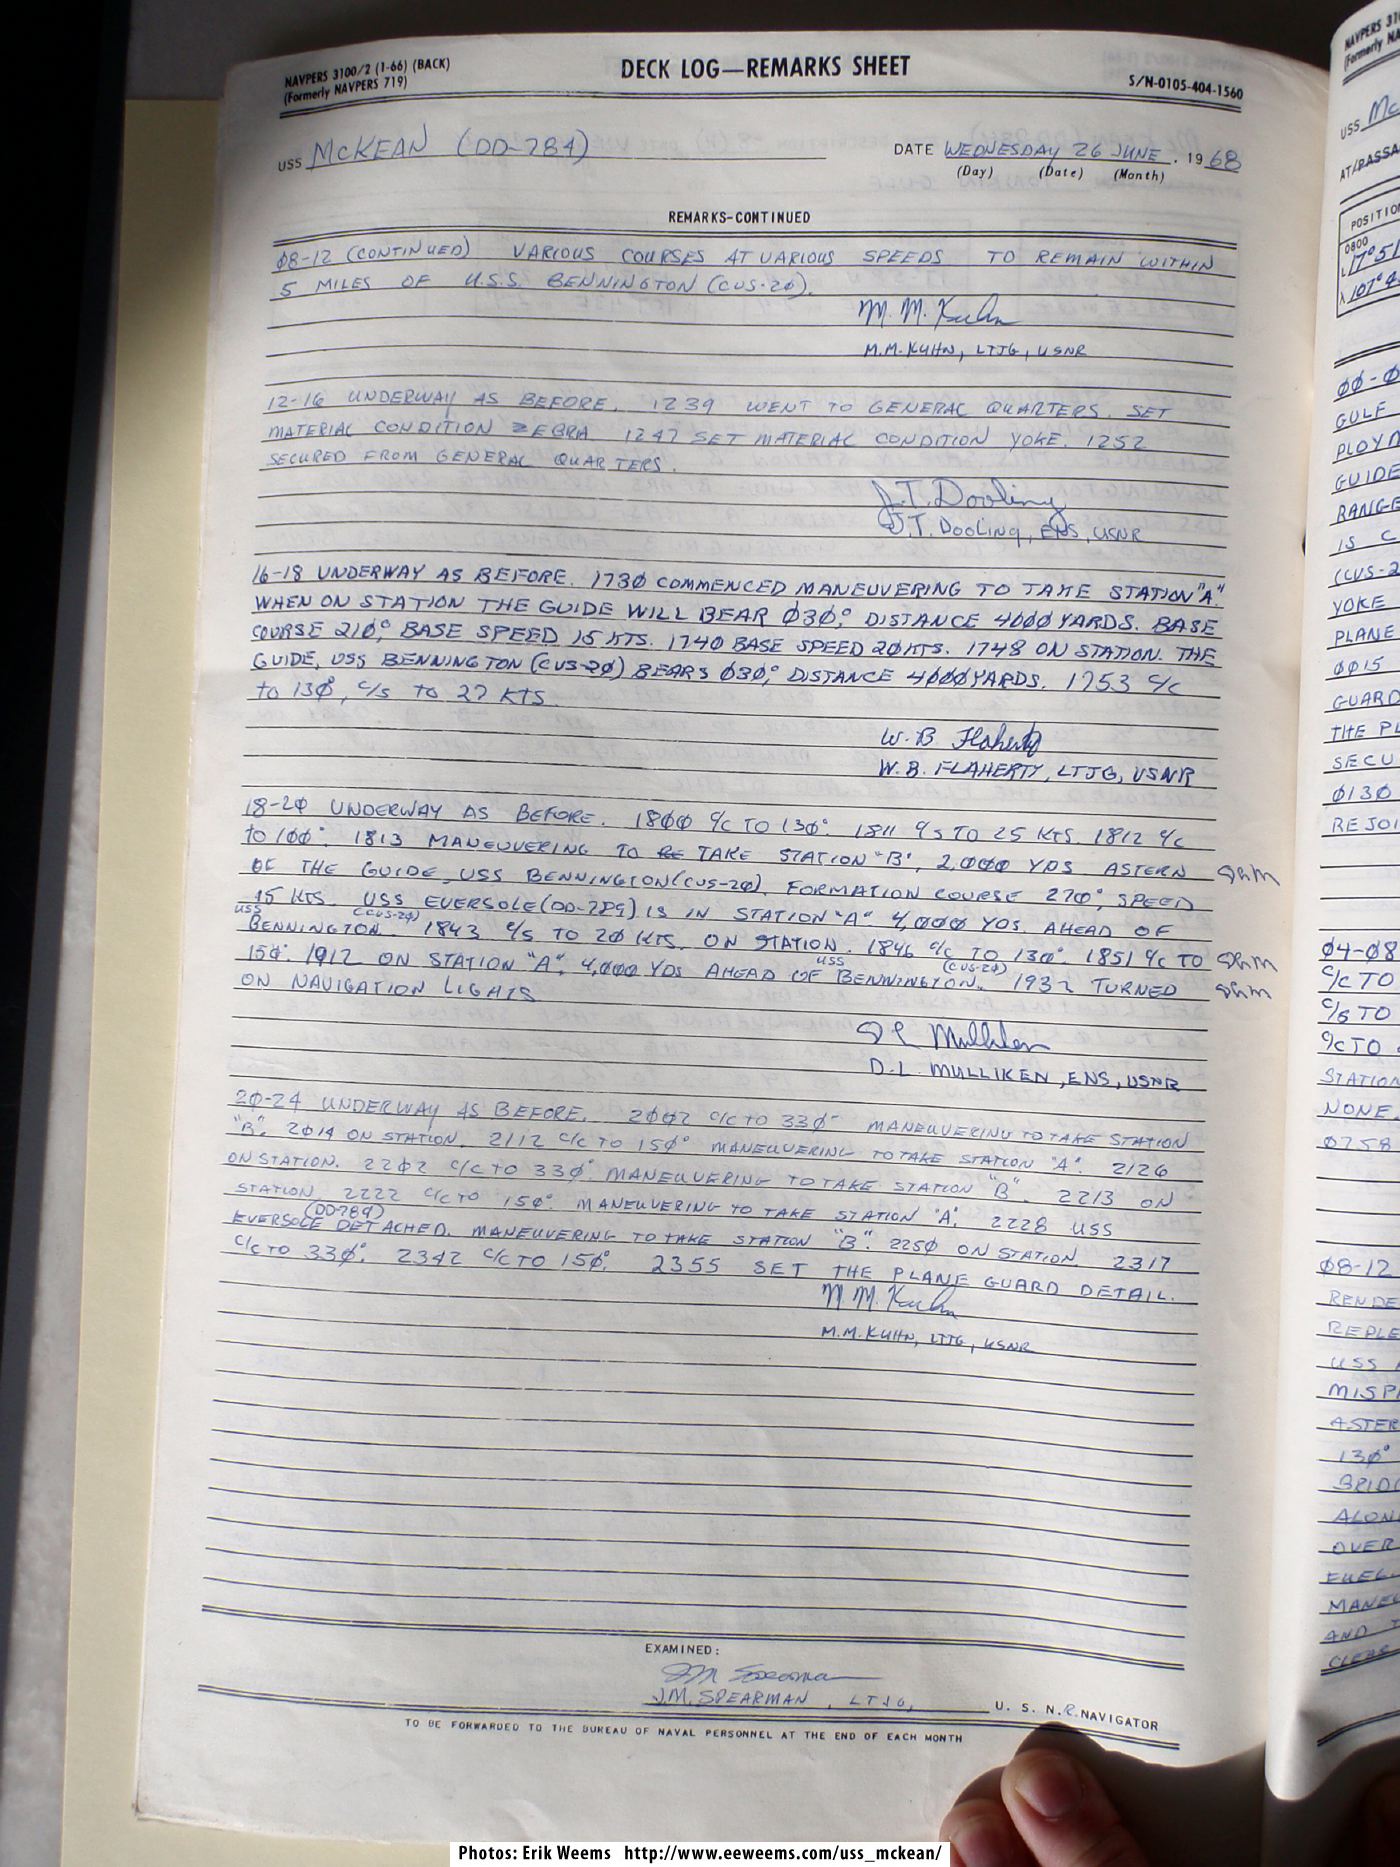 NAVPERS 3100/2 (1-66) (BACK)
(Formerly NAVPERS 719)
DECK LOG—REMARKS SHEET
S/N-0105-404-1560
USS McKEAN (DD-784)
DATE WEDNESDAY 26 JUNE, 1968
(Day) (Date) (Month)
REMARKS-CONTINUED
Ø8-12 (CONTINUED) VARIOUS COURSES AT VARIOUS SPEEDS TO REMAIN WITHIN
5 MILES OF U.S.S. BENNINGTON (CVS-2Ø).
M. M. Kuhn
M.M. KUHN, LTJG, USNR
12-16 UNDERWAY AS BEFORE. 1239 WENT TO GENERAL QUARTERS. SET
MATERIAL CONDITION ZEBRA. 1247 SET MATERIAL CONDITION YOKE. 1252
SECURED FROM GENERAL QUARTERS.
J.T. Dooling
J.T. DOOLING, ENS, USNR
16-18 UNDERWAY AS BEFORE. 173Ø COMMENCED MANEUVERING TO TAKE STATION "A".
WHEN ON STATION THE GUIDE WILL BEAR Ø3Ø°, DISTANCE 4ØØØ YARDS. BASE
COURSE 21Ø°, BASE SPEED 15 KTS. 174Ø BASE SPEED 2Ø KTS. 1748 ON STATION. THE
GUIDE, USS BENNINGTON (CVS-2Ø) BEARS Ø3Ø°, DISTANCE 4ØØØ YARDS. 1753 C/C
TO 13Ø°, C/S TO 27 KTS.
W. B Flaherty
W. B. FLAHERTY, LTJG, USNR
18-2Ø UNDERWAY AS BEFORE. 18ØØ C/C TO 13Ø°. 1811 C/S TO 25 KTS. 1812 C/C
TO 1ØØ°. 1813 MANEUVERING TO RE TAKE STATION "B", 2,ØØØ YDS ASTERN
OF THE GUIDE, USS BENNINGTON (CVS-2Ø), FORMATION COURSE 27Ø°, SPEED
15 KTS. USS EVERSOLE (DD-789) IS IN STATION "A" 4,ØØØ YDS. AHEAD OF
USS BENNINGTON (CVS-2Ø). 1843 C/S TO 2Ø KTS. ON STATION. 1846 C/C TO 13Ø°. 1851 C/C TO
15Ø°. 1912 ON STATION "A", 4,ØØØ YDS AHEAD OF USS BENNINGTON (CVS-2Ø). 1932 TURNED
ON NAVIGATION LIGHTS
D L Mulliken
D. L. MULLIKEN, ENS, USNR
2Ø-24 UNDERWAY AS BEFORE. 2ØØ2 C/C TO 33Ø° MANEUVERING TO TAKE STATION
"B". 2Ø14 ON STATION. 2112 C/C TO 15Ø° MANEUVERING TO TAKE STATION "A". 2126
ON STATION. 22Ø2 C/C TO 33Ø°. MANEUVERING TO TAKE STATION "B". 2213 ON
STATION. 2222 C/C TO 15Ø°. MANEUVERING TO TAKE STATION "A". 2228 USS
EVERSOLE (DD-789) DETACHED. MANEUVERING TO TAKE STATION "B". 225Ø ON STATION. 2317
C/C TO 33Ø°. 2342 C/C TO 15Ø°. 2355 SET THE PLANE GUARD DETAIL.
M.M. Kuhn
M.M. KUHN, LTJG, USNR
EXAMINED:
J M Spearman
J.M. SPEARMAN, LTJG, U. S. N.R. NAVIGATOR
TO BE FORWARDED TO THE BUREAU OF NAVAL PERSONNEL AT THE END OF EACH MONTH
NAVPERS
(Formerly
USS Mc
POSITIO
Ø8ØØ
GULF
GUIDE
RANGE
IS C
YOKE
PLANE
ØØ15
GUARD
THE PL
SECU
Ø13Ø
REJOI
Ø4-Ø8
C/C TO
C/S TO
C/C TO
STATION
NONE.
Ø758
Ø8-12
RENDE
REPLE
USS
ASTER
13Ø°
BRIDG
OVER
MANEU
AND
Photos: Erik Weems http://www.eeweems.com/uss_mckean/